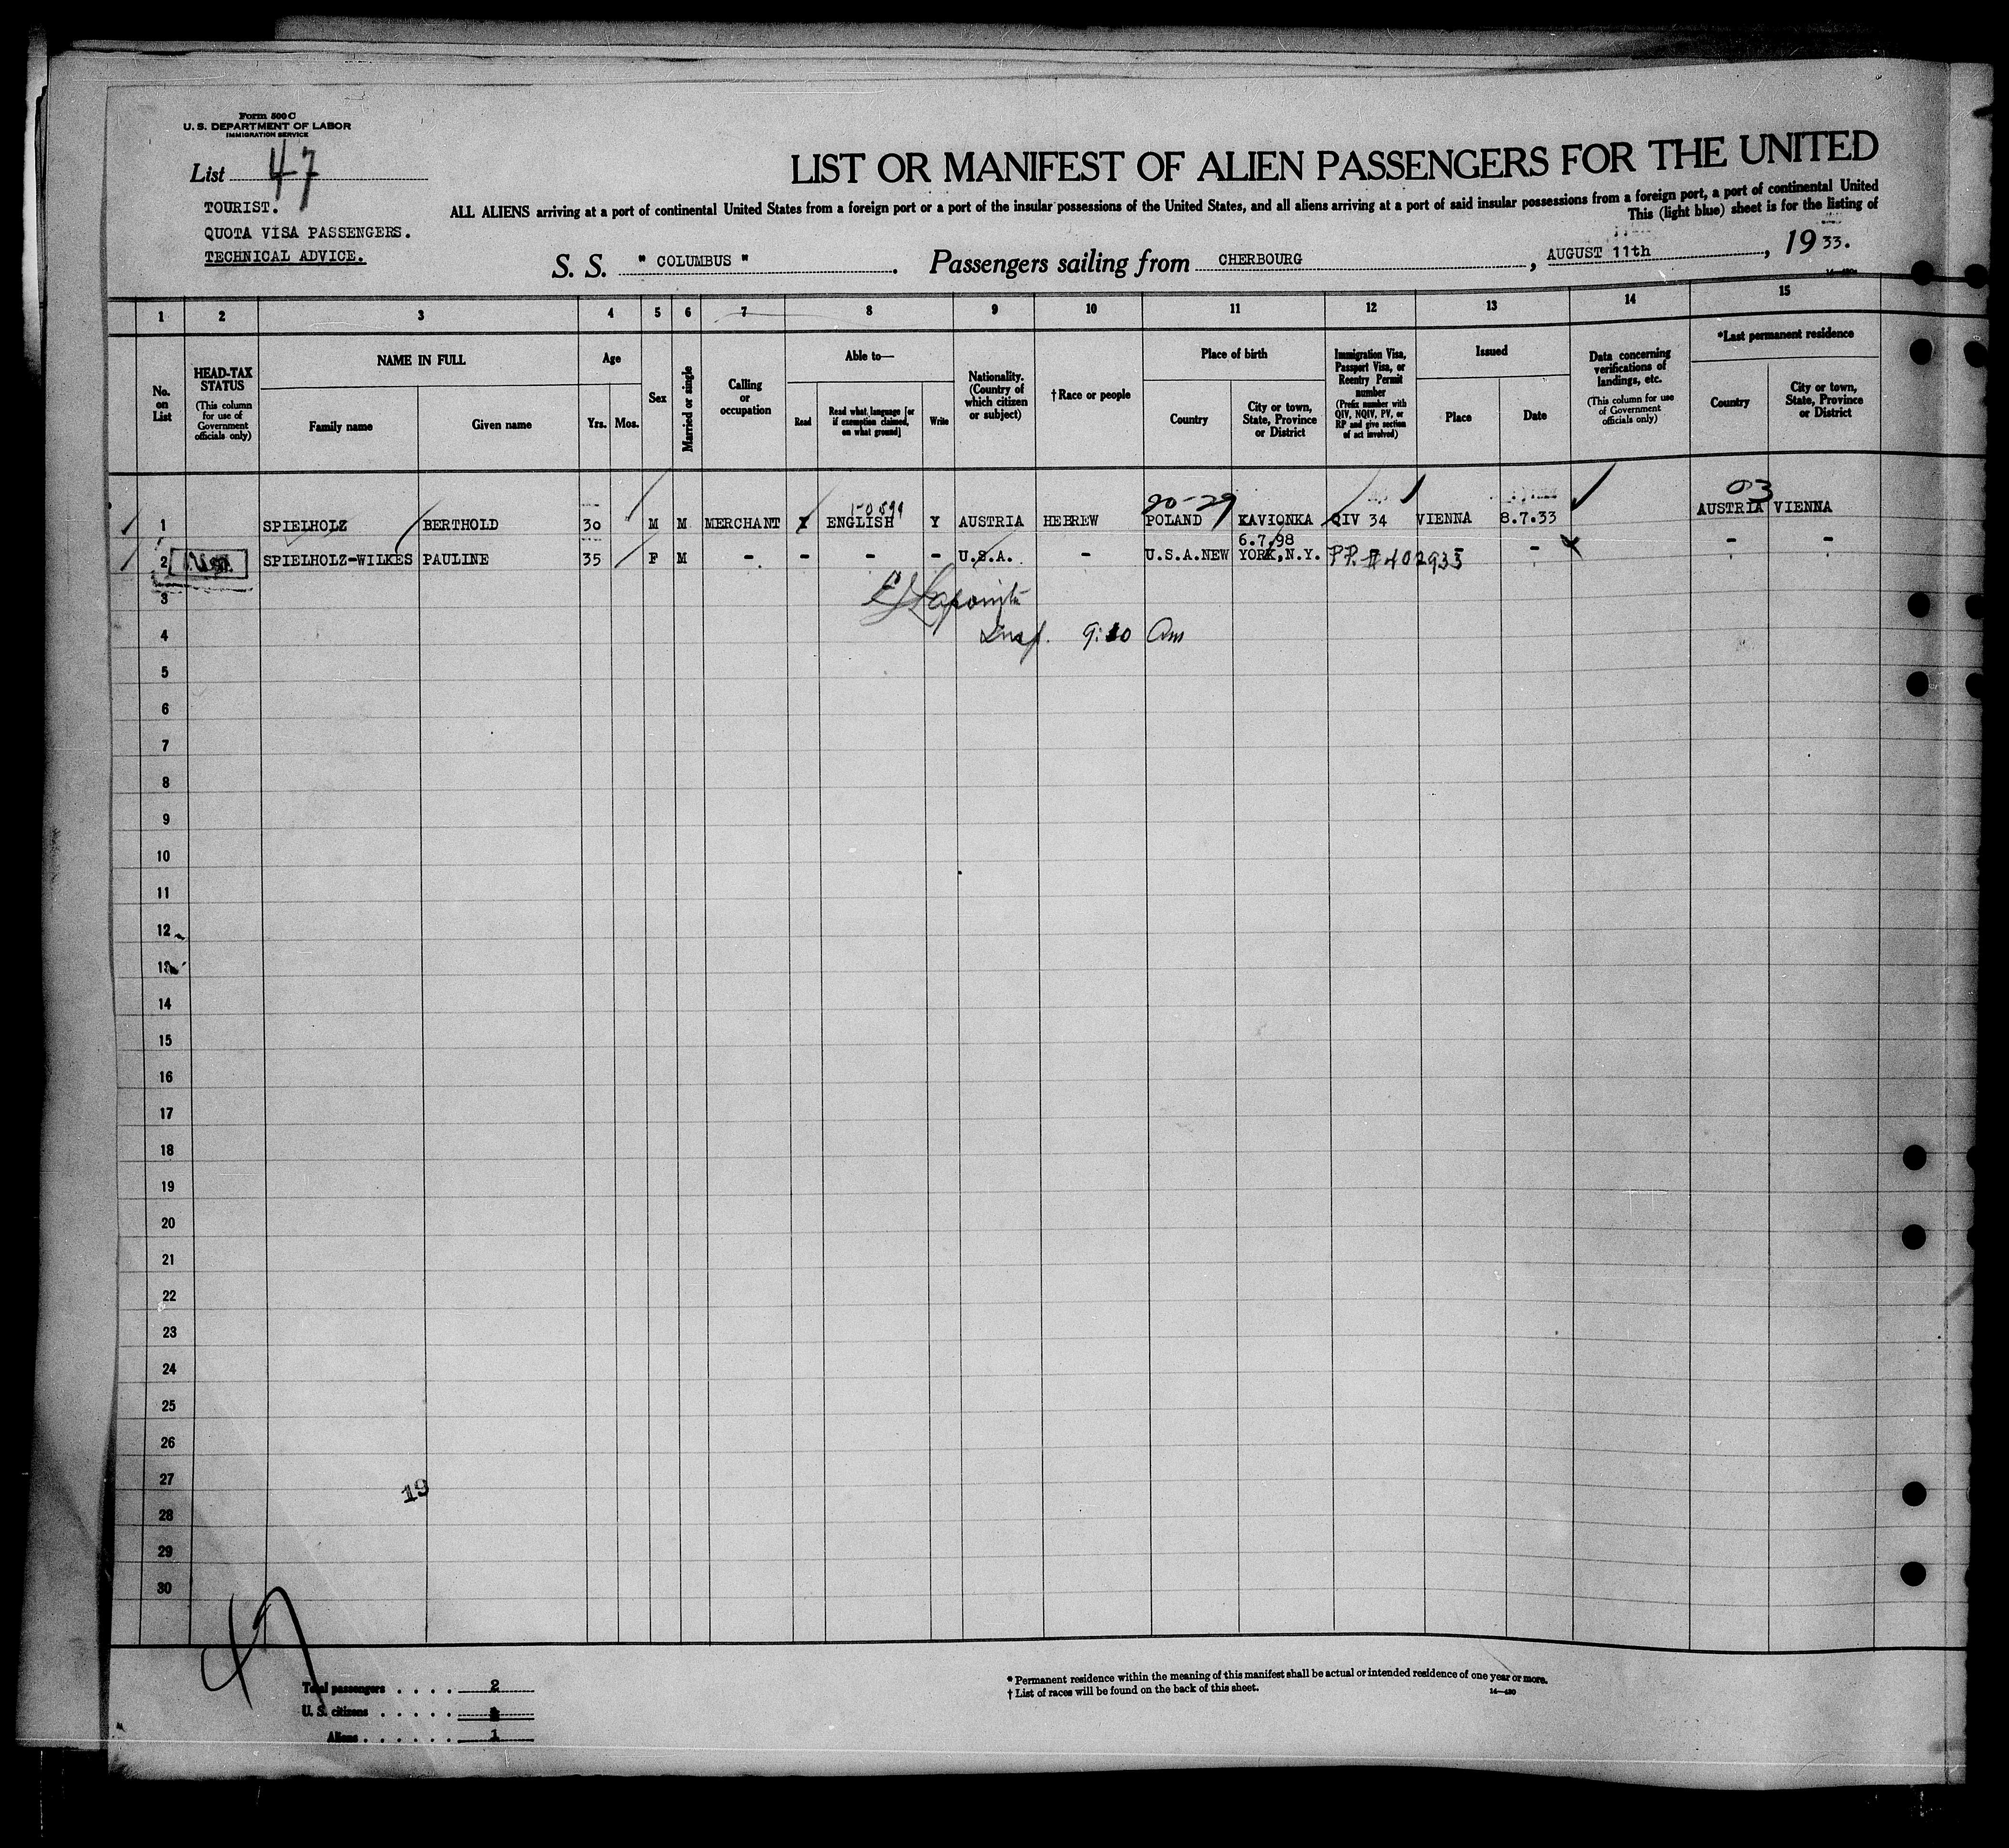 Form 500 C
U. S. DEPARTMENT OF LABOR
IMMIGRATION SERVICE
List 47
LIST OR MANIFEST OF ALIEN PASSENGERS FOR THE UNITED
TOURIST.
QUOTA VISA PASSENGERS.
TECHNICAL ADVICE.
ALL ALIENS arriving at a port of continental United States from a foreign port or a port of the insular possessions of the United States, and all aliens arriving at a port of said insular possessions from a foreign port, a port of continental United
This (light blue) sheet is for the listing of
S. S. " COLUMBUS ". Passengers sailing from CHERBOURG, AUGUST 11th, 1933.
1 2 3 4 5 6 7 8 9 10 11 12 13 14 15
No. on List
HEAD-TAX STATUS
(This column for use of Government officials only)
NAME IN FULL
Family name Given name
Age
Yrs. Mos.
Sex
Married or single
Calling or occupation
Able to—
Read
Read what language [or if exemption claimed, on what ground]
Write
Nationality. (Country of which citizen or subject)
† Race or people
Place of birth
Country
City or town, State, Province or District
Immigration Visa, Passport Visa, or Reentry Permit number
(Prefix number with QIV, NQIV, PV, or RP and give section of act involved)
Issued
Place Date
Data concerning verifications of landings, etc.
(This column for use of Government officials only)
*Last permanent residence
Country
City or town, State, Province or District
20-29 03
1 SPIELHOLZ BERTHOLD 30 M M MERCHANT Y ENGLISH Y AUSTRIA HEBREW POLAND KAVIONKA QIV 34 VIENNA 8.7.33 AUSTRIA VIENNA
6.7.98
2 SPIELHOLZ-WILKES PAULINE 35 F M - - - - U.S.A. - U.S.A. NEW YORK, N.Y. P.P. # 402935 - - -
3
4 Insp. 9:10 Am
5
6
7
8
9
10
11
12
13
14
15
16
17
18
19
20
21
22
23
24
25
26
27
19
28
29
30
47
Total passengers . . . . 2
U. S. citizens . . . . .
Aliens . . . . . . 1
* Permanent residence within the meaning of this manifest shall be actual or intended residence of one year or more.
† List of races will be found on the back of this sheet.
14—430